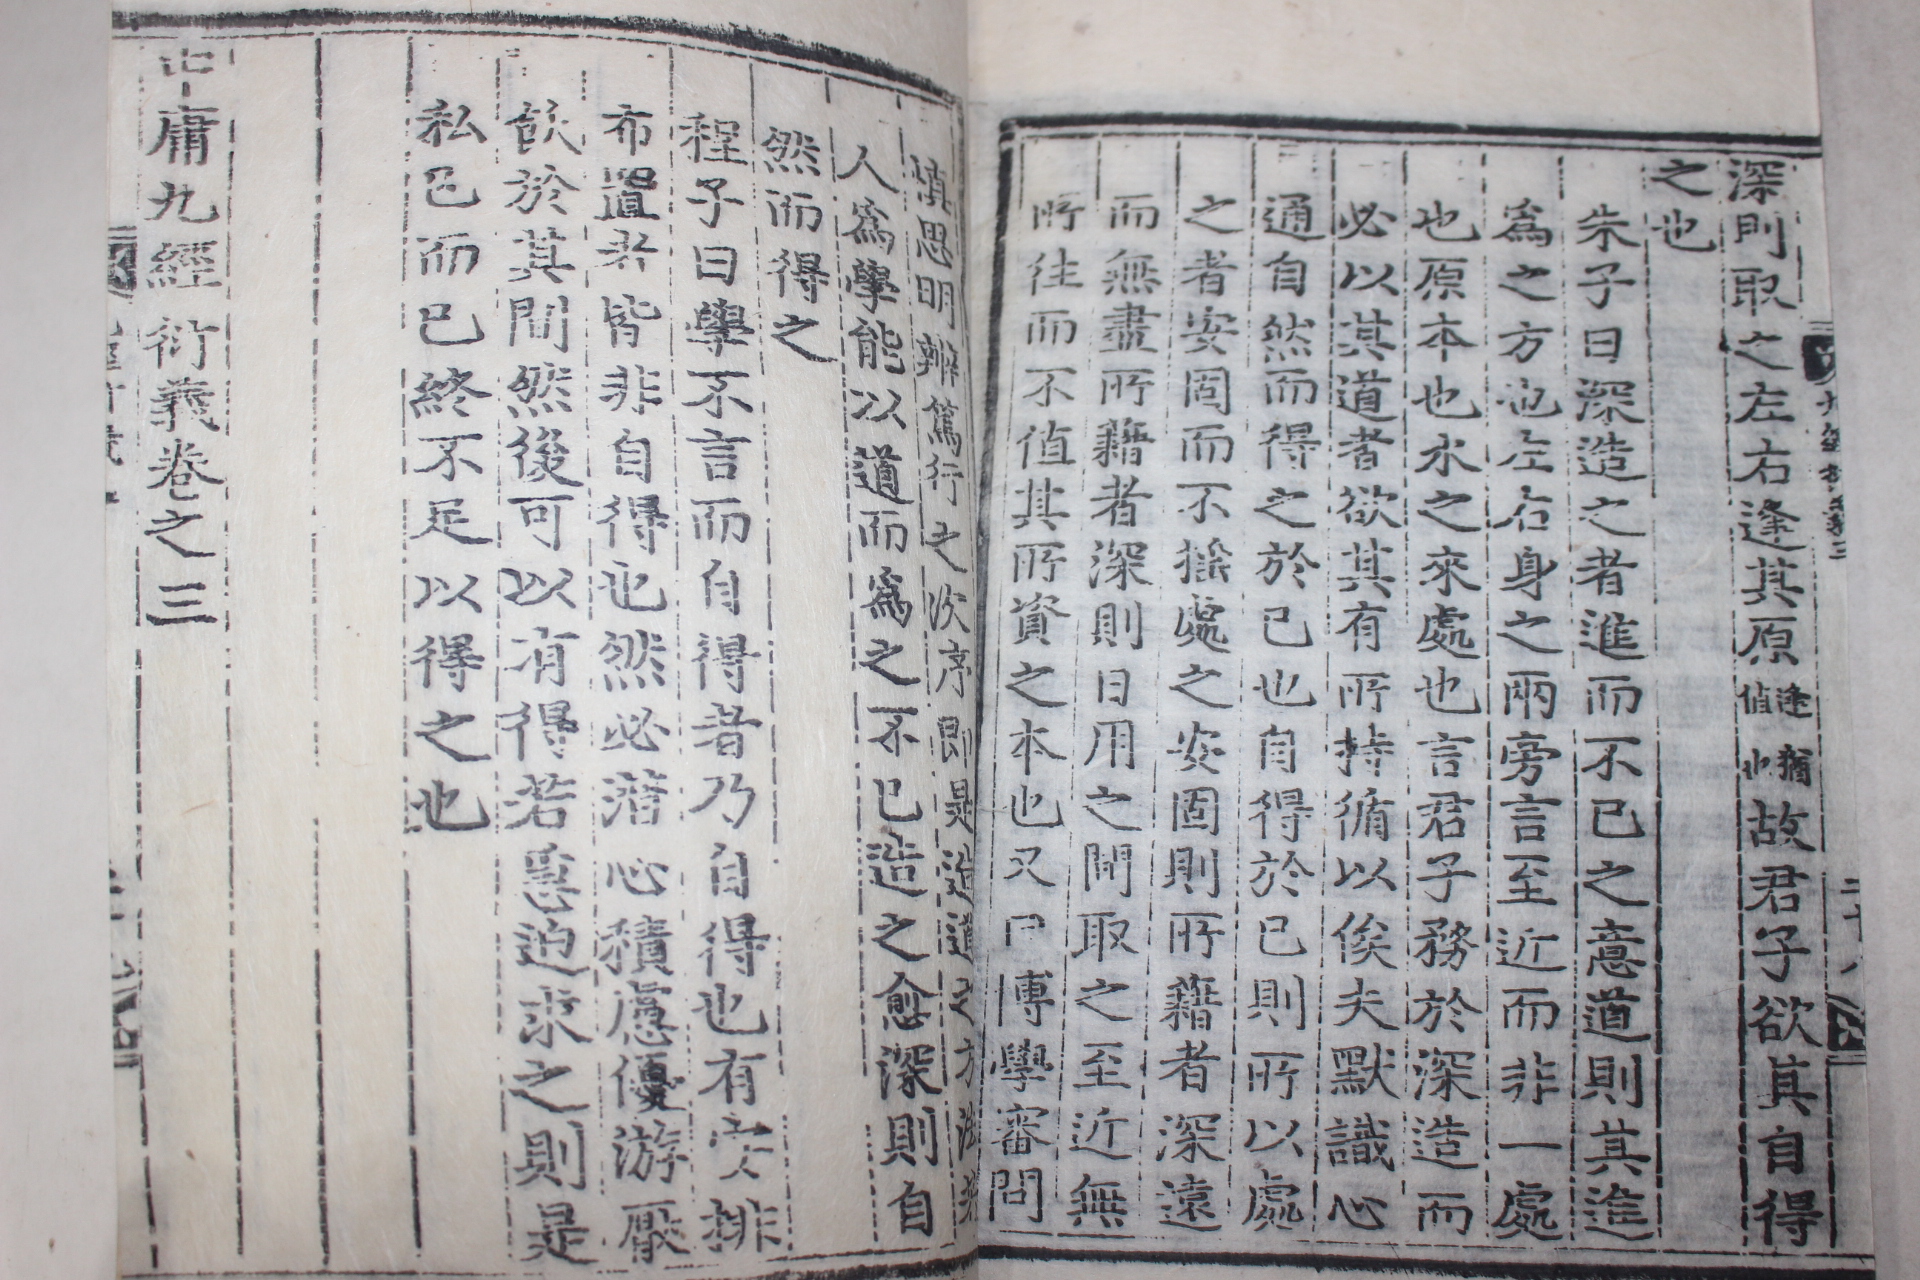 深則取之左右逢其原逢猶值也故君子欲其自得
之也
朱子曰深造之者進而不已之意道則其進
為之方也左右身之兩旁言至近而非一處
也原本也水之來處也言君子務於深造而
必以其道者欲其有所持循以俟夫默識心
通自然而得之於已也自得於已則所以處
之者安固而不搖處之安固則所藉者深遠
而無盡所藉者深則日用之間取之至近無
所往而不值其所資之本也又曰博學審問
慎思明辨篤行之次序即是造道之方法若
人為學能以道而為之不已造之愈深則自
然而得之
程子曰學不言而自得者乃自得也有安排
布置者皆非自得也然必潛心積慮優游厭
飫於其間然後可以有得若急迫求之則是
私已而已終不足以得之也
中庸九經衍義卷之三